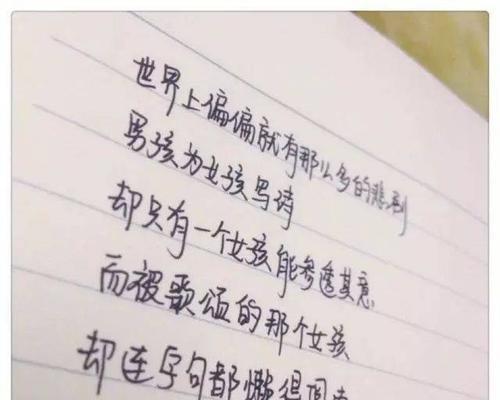 世界上偏偏就有那么多的悲剧
男孩为女孩写诗
却只有一个女孩能参透其意
而被歌颂的那个女孩
却连字句都懒得